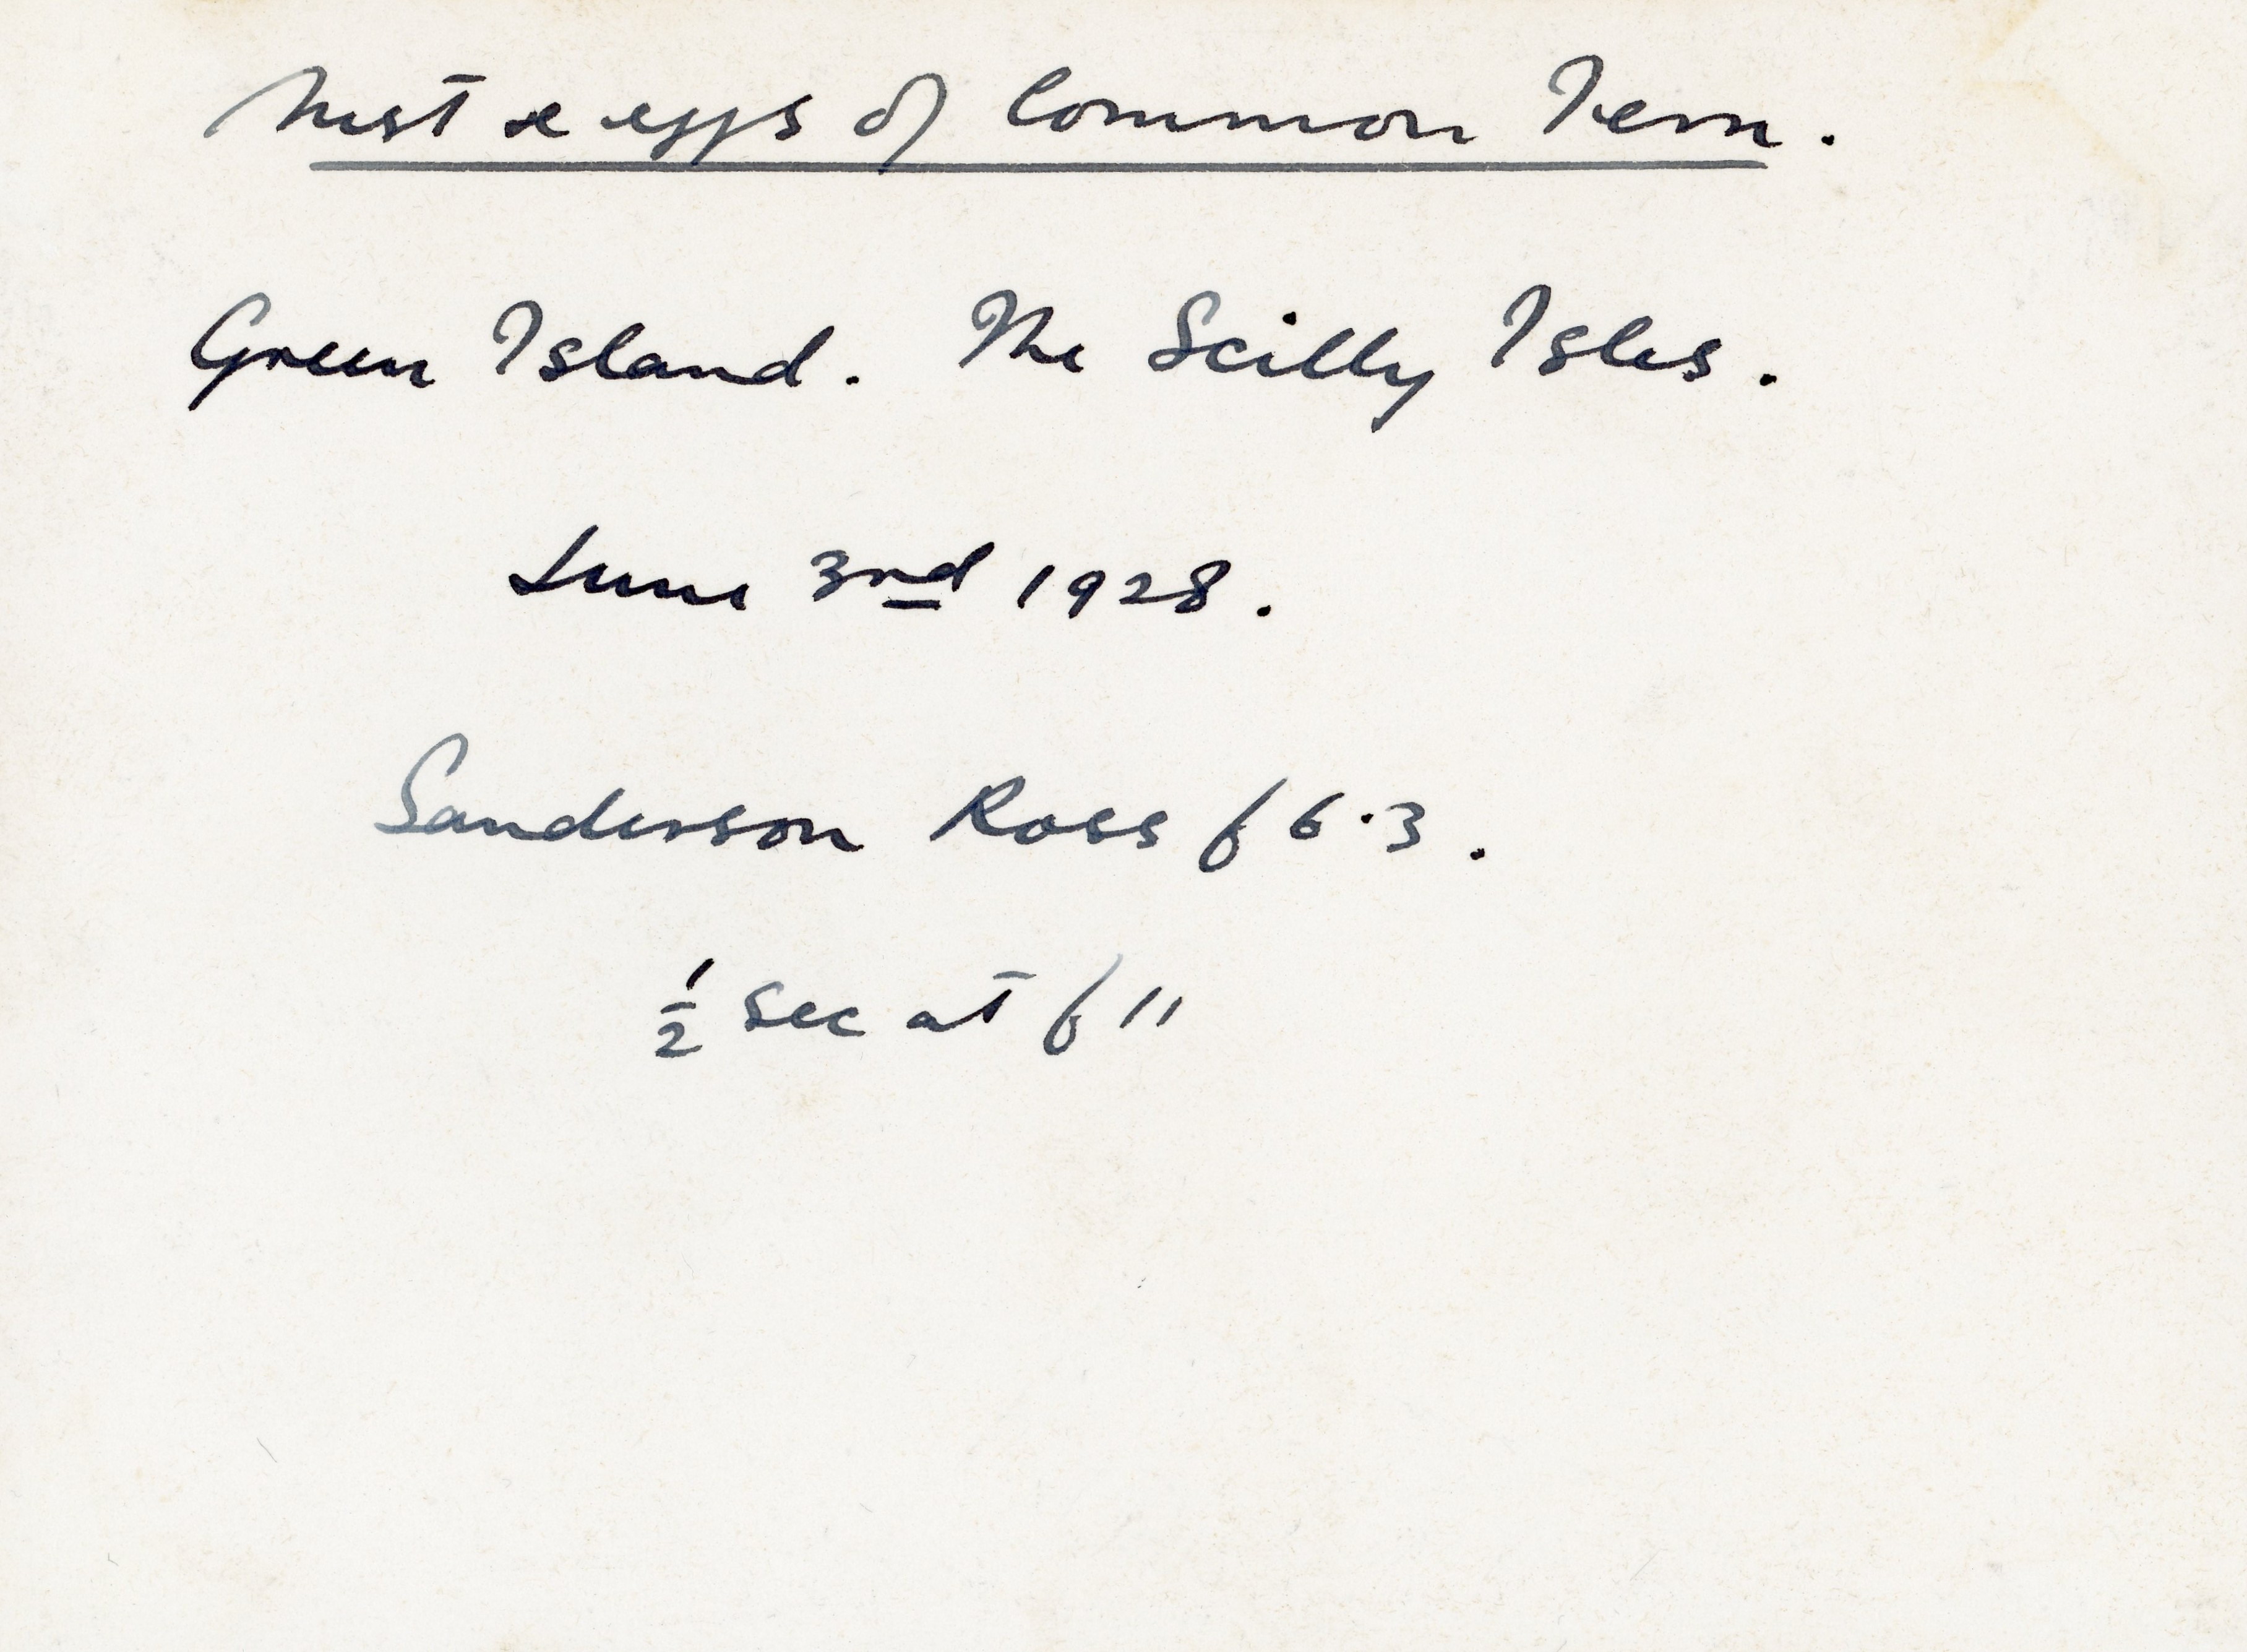 Nest & eggs of Common Tern.
Green Island. The Scilly Isles.
June 3rd 1928.
Sanderson Ross f 6.3.
½ sec at f 11